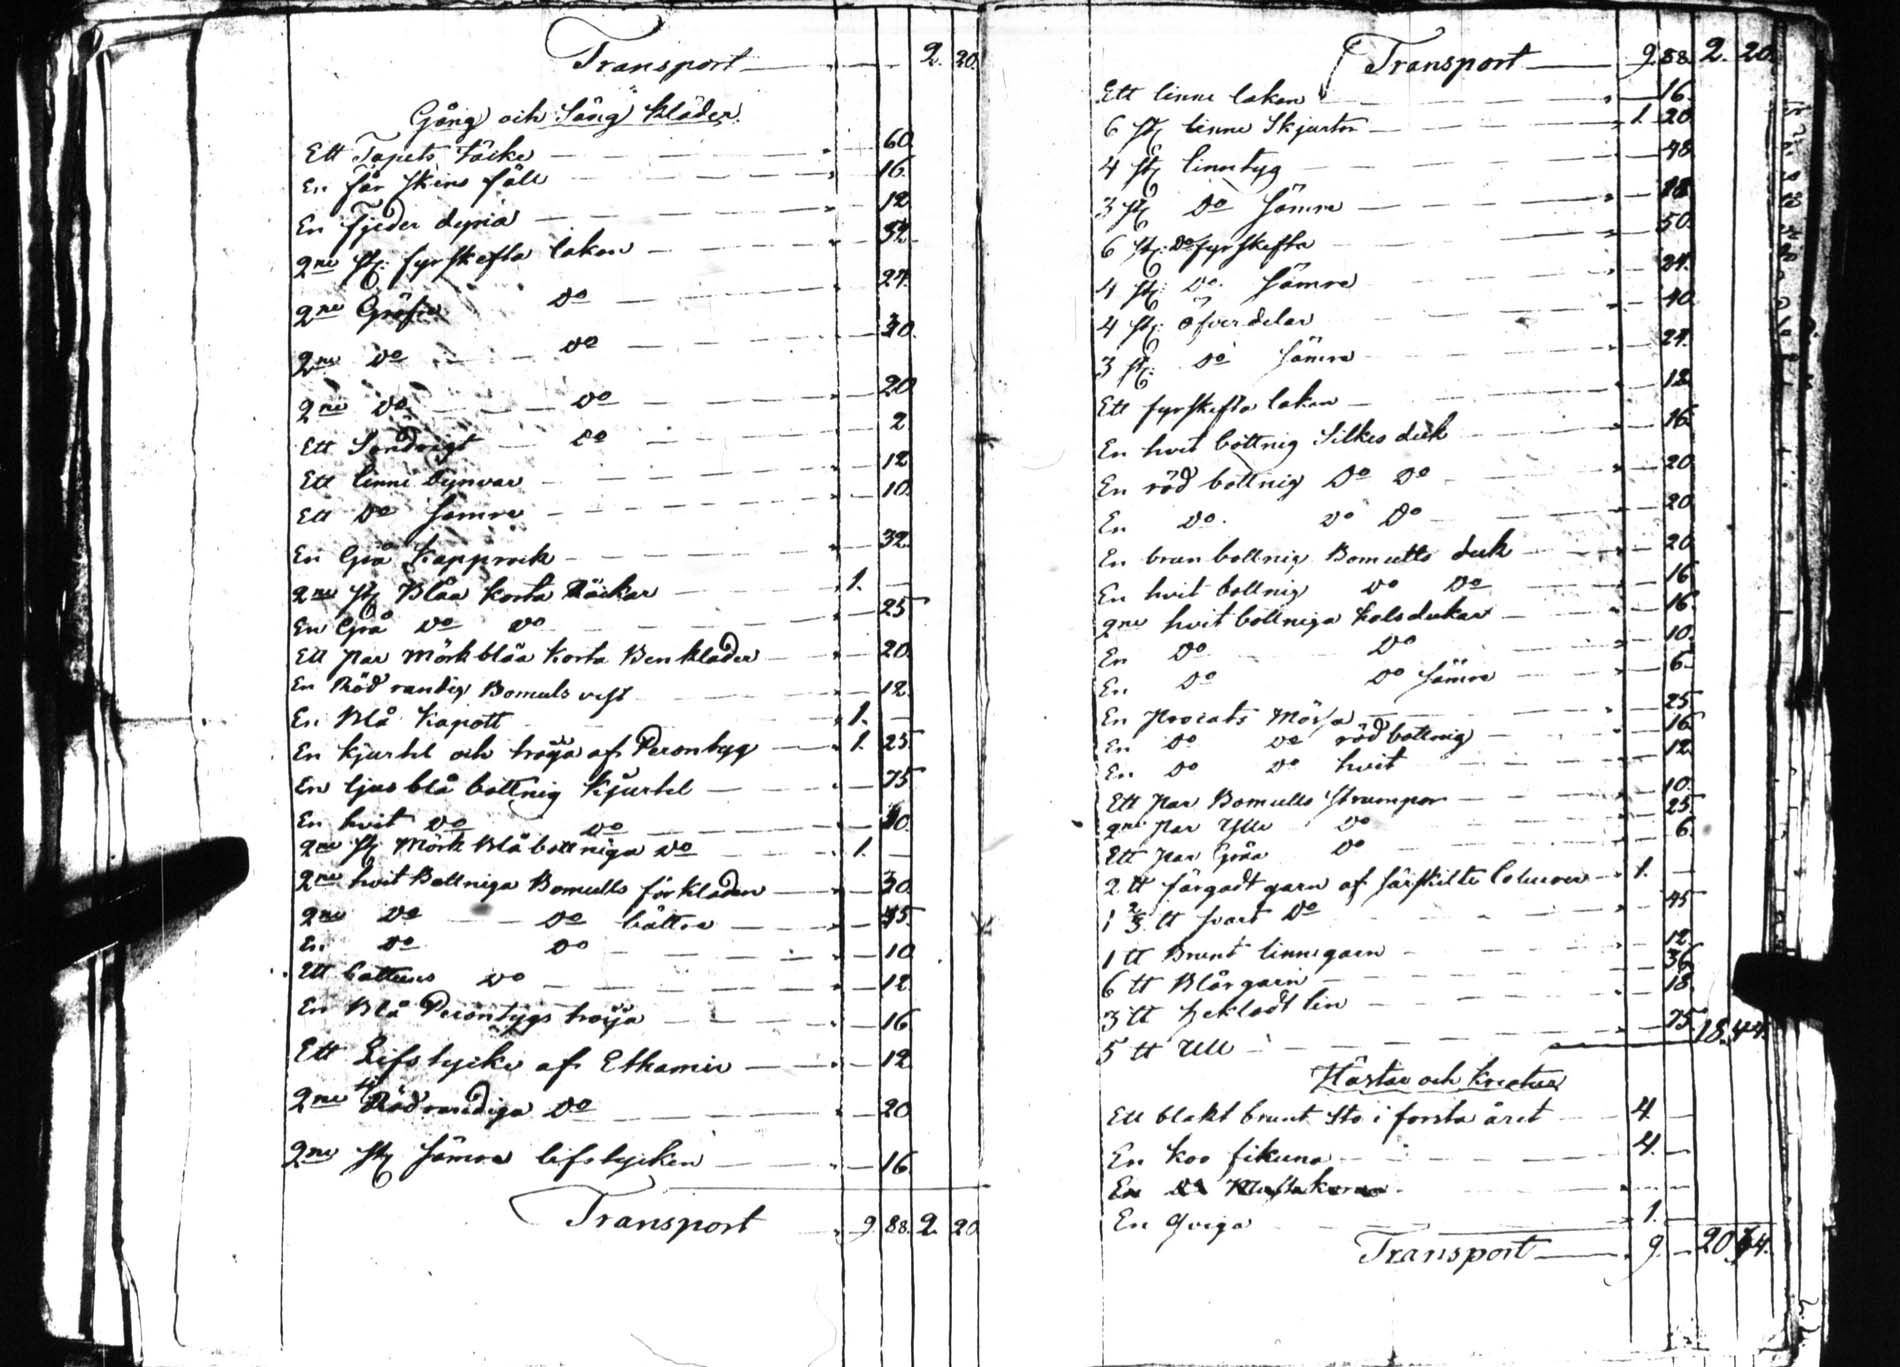 Transport 2. 20.
Gång och Säng kläder.
Ett Tapets täcke 60.
En får skins fäll 16.
En Fjeder dyna 12
2ne st. fyrskefta lakan 32.
2ne Gröfre Do 24.
2ne Do Do
2ne Do Do 20
Ett Söndrigt Do 2
Ett linne Dynvar 12
Ett Do sämre 10.
En Grå Kapprock 32
2ne st Blåa korta Råckar 1. —
En Grå Do Do 25
Ett par mörkblåa korta Benkläder 20.
En Röd randig Bomuls vest 12.
En Blå Kapott 1. —
En kjortel och tröja af Perontyg 1. 25.
En ljusblå bottnig kjortel 75
En hvit Do Do
2ne st Mörk Blå bottniga Do 1. —
2ne hvit Bottniga Bomulls förkläden 30.
2ne Do Do bättre 45
En Do Do 10
Ett Cattuns Do 12.
En Blå Perontygs tröija 16
Ett Lifstycke af Ethamin 12
2ne st Rödrandiga Do 20
2ne st sämre lifstycken 16
Transport 9. 88. 2. 20.
Transport 9. 88. 2. 20.
Ett linne lakan 16.
6 st linne Skjortor 1. 20
4 st linntyg 48.
3 st Do sämre 18.
6 st. Do fyrskefta 50.
4 st. Do. sämre 24.
4 st. öfverdelar 40.
3 st. Do sämre 24.
Ett fyrskefta lakan 12
En hvit bottnig Silkes duk 16.
En röd bottnig Do Do 20
En Do. Do Do 20
En brun bottnig Bomulls duk 20
En hvit bottnig Do Do 16
2ne hvit bottniga halsdukar 16.
En Do Do 10.
En Do Do sämre 6.
En Procats Mössa 25
En Do Do röd bottnig 16
En Do Do hvit 12
Ett par Bomulls Strumpor 10.
2ne par Ylle Do 25
Ett par Gråa Do 6.
2 tt färgadt garn af särskilte Coleurer 1. —
1 2/3 tt svart Do 45
1 tt Brunt linnegarn 12
6 tt Blårgarn 36
3 tt hekladt lin 18.
5 tt Ull 75 18. 44.
Hästar och Kreatur
Ett blakt brunt Sto i första året 4. —
En koo fikuna 4. —
En Do
En Qviga 1. —
Transport 9. — 20. 64.